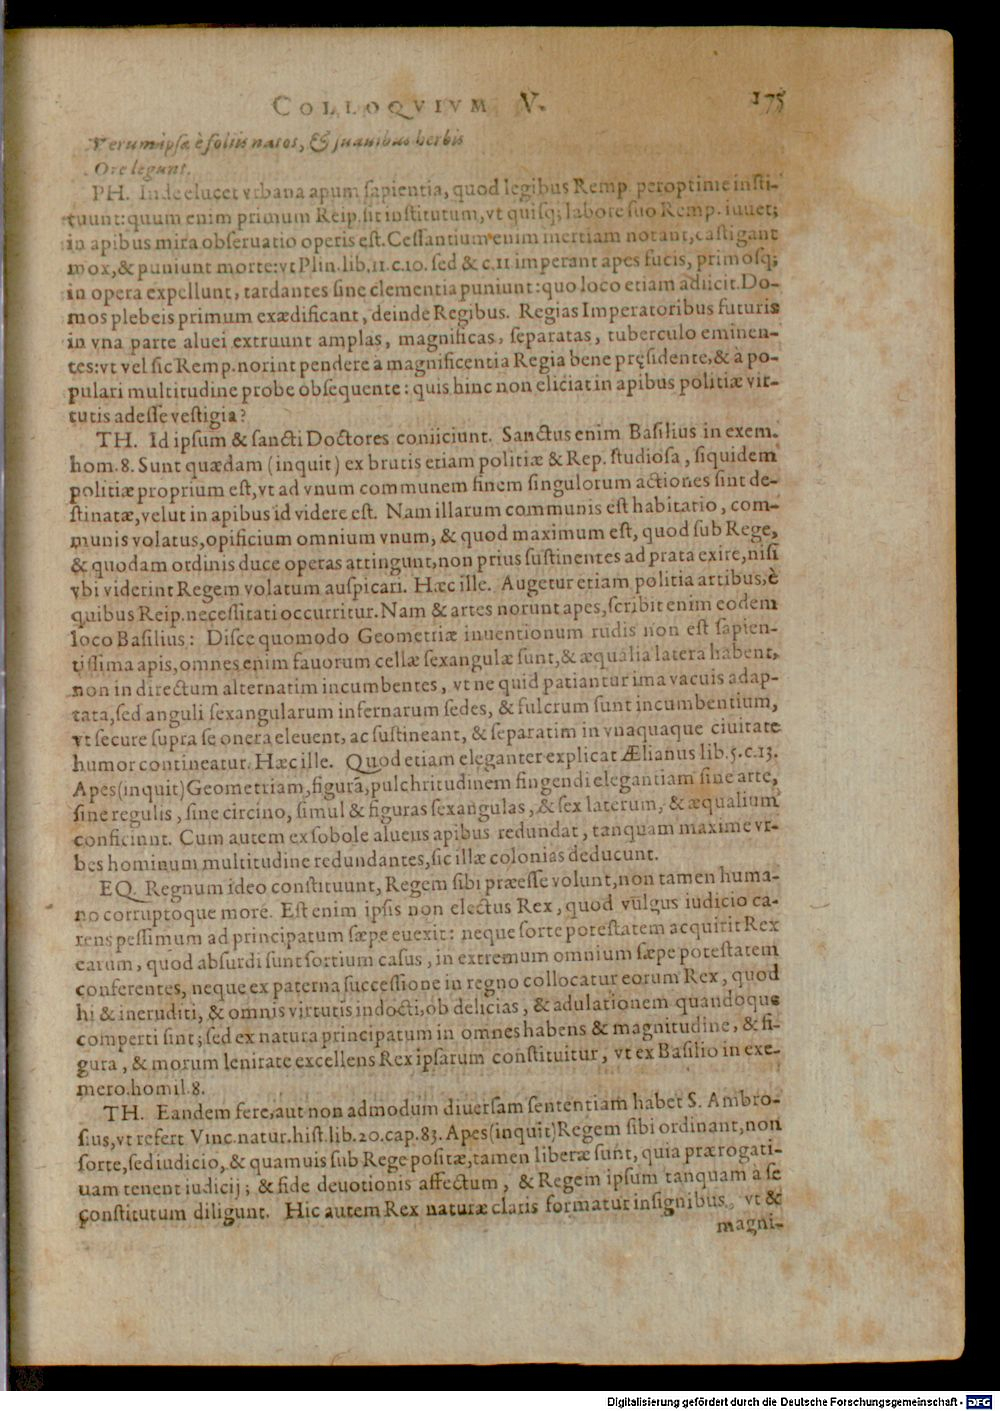 COLLOQVIVM V. 175
Verum ipsæ è foliis natos, & suauibus herbis
Ore legunt.
PH. Inde elucet vrbana apum sapientia, quod legibus Remp. peroptime insti-
tuunt: quum enim primum Reip. sit institutum, vt quisq; labore suo Remp. iuuet;
in apibus mira obseruatio operis est. Cessantium enim inertiam notant, castigant
mox, & puniunt morte: vt Plin. lib. 11. c. 10. sed & c. 11 imperant apes fucis, primosq;
in opera expellunt, tardantes sine clementia puniunt: quo loco etiam adiicit. Do-
mos plebeis primum exædificant, deinde Regibus. Regias Imperatoribus futuris
in vna parte aluei extruunt amplas, magnificas, separatas, tuberculo eminen-
tes: vt vel sic Remp. norint pendere à magnificentia Regia bene pręsidente, & à po-
pulari multitudine probe obsequente: quis hinc non eliciat in apibus politiæ vir-
tutis adesse vestigia?
TH. Id ipsum & sancti Doctores coniiciunt. Sanctus enim Basilius in exem.
hom. 8. Sunt quædam (inquit) ex brutis etiam politiæ & Rep. studiosa, siquidem
politiæ proprium est, vt ad vnum communem finem singulorum actiones sint de-
stinatæ, velut in apibus id videre est. Nam illarum communis est habitatio, com-
munis volatus, opificium omnium vnum, & quod maximum est, quod sub Rege,
& quodam ordinis duce operas attingunt, non prius sustinentes ad prata exire, nisi
vbi viderint Regem volatum auspicari. Hæc ille. Augetur etiam politia artibus, è
quibus Reip. necessitati occurritur. Nam & artes norunt apes, scribit enim eodem
loco Basilius: Disce quomodo Geometriæ inuentionum rudis non est sapien-
tissima apis, omnes enim fauorum cellæ sexangulæ sunt, & æqualia latera habent,
non in directum alternatim incumbentes, vt ne quid patiantur ima vacuis adap-
tata, sed anguli sexangularum infernarum sedes, & fulcrum sunt incumbentium,
vt secure supra se onera eleuent, ac sustineant, & separatim in vnaquaque ciuitate
humor contineatur. Hæc ille. Quod etiam eleganter explicat Ælianus lib. 5. c. 13.
Apes (inquit) Geometriam, figurã, pulchritudinem fingendi elegantiam sine arte,
sine regulis, sine circino, simul & figuras sexangulas, & sex laterum, & æqualium
conficiunt. Cum autem ex sobole alueus apibus redundat, tanquam maxime vr-
bes hominum multitudine redundantes, sic illæ colonias deducunt.
EQ. Regnum ideo constituunt, Regem sibi præesse volunt, non tamen huma-
no corruptoque more. Est enim ipsis non electus Rex, quod vulgus iudicio ca-
rens pessimum ad principatum sæpe euexit: neque sorte potestatem acquirit Rex
earum, quod absurdi sunt sortium casus, in extremum omnium sæpe potestatem
conferentes, neque ex paterna successione in regno collocatur eorum Rex, quod
hi & ineruditi, & omnis virtutis indocti, ob delicias, & adulationem quandoque
comperti sint; sed ex natura principatum in omnes habens & magnitudine, & fi-
gura, & morum lenitate excellens Rex ipsarum constituitur, vt ex Basilio in exe-
mero. homil. 8.
TH. Eandem fere, aut non admodum diuersam sententiam habet S. Ambro-
sius, vt refert Vinc. natur. hist. lib. 20. cap. 83. Apes (inquit) Regem sibi ordinant, non
sorte, sed iudicio, & quamuis sub Rege positæ, tamen liberæ sunt, quia prærogati-
uam tenent iudicij; & fide deuotionis affectum, & Regem ipsum tanquam a se
constitutum diligunt. Hic autem Rex naturæ claris formatur insignibus, vt &
magni-
Digitalisierung gefördert durch die Deutsche Forschungsgemeinschaft - DFG